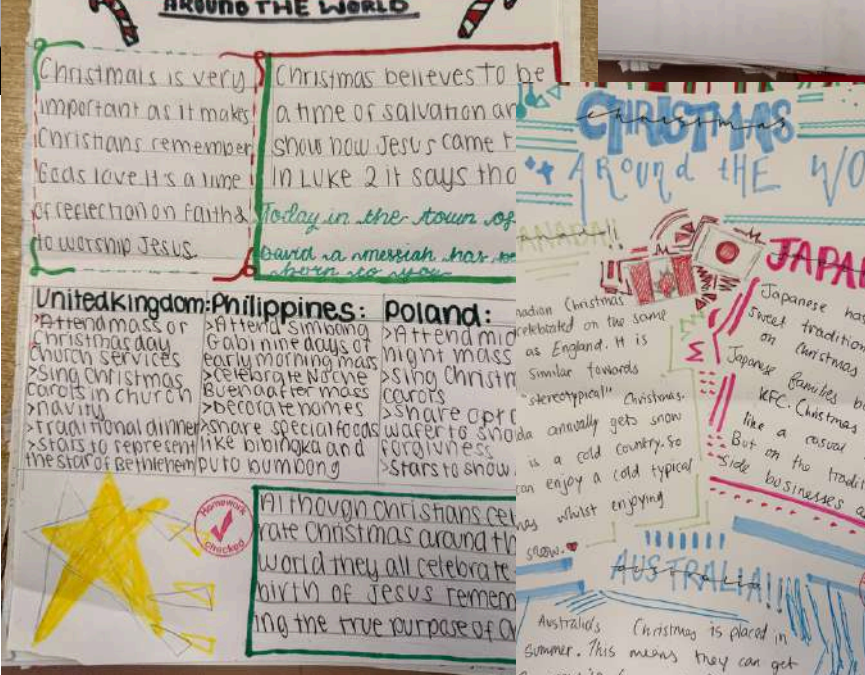 AROUND THE WORLD
Christmais is very
important as it makes
Christians remember
Gods love. It's a time
of reflection on faith &
to worship Jesus.
Christmas believes to be
a time of salvation an
show how Jesus came t
in LUKE 2 it says tha
Today in the town of
David a messiah has be
born to you
United kingdom:
>Attend mass or
Christmas day
church services
>sing christmas
carols in church
>navity
>traditional dinner
>stars to represent
the star of Bethlehem
Philippines:
>Attend simbang
Gabi nine days of
early morning mass
>celebrate Noche
Buena after mass
>Decorate homes
>share special foods
like bibingka and
puto bumbong
Poland:
>Attend mid
night mass
>sing Christm
carols
>share opla
wafer to sho
forgivness
>stars to show
Homework
checked
Although christians cel
rate Christmas around th
world they all celebrate
birth of Jesus remem
ing the true purpose of
CHRISTMAS
christmas
AROUND THE WO
ANADA!!
nadian Christmas
celebrated on the same
as England. It is
similar towards
"stereotypical" Christmas.
da annually gets snow
is a cold country. So
can enjoy a cold typical
mas whilst enjoying
snow.
JAPA
Japanese has
sweet tradition
on Christmas
Japanese families b
KFC. Christmas
like a casual
But on the tradit
side businesses a
AUSTRALIA!!!
Australia's Christmas is placed in
summer. This means they can get